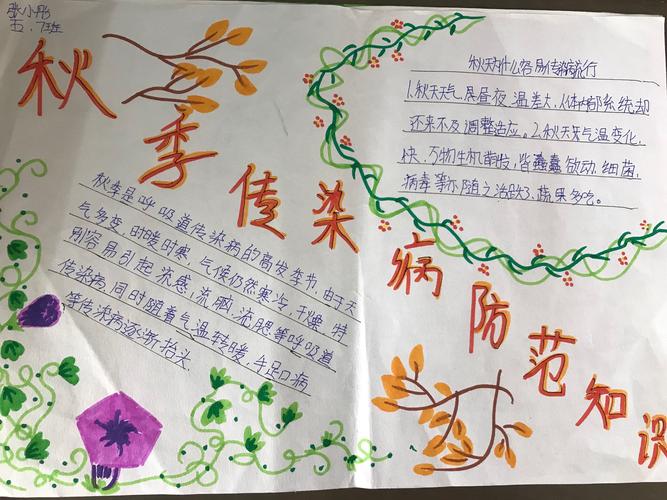 张小彤
五、7班
秋季传染病防范知识
秋天为什么容易传染病流行
1.秋天天气,昼夜温差大,人体内部系统却
还来不及调整适应。2.秋天天气温变化
快,万物生机萌发,皆蠢蠢欲动,细菌,
病毒等亦随之活跃3、蔬果多吃。
秋季是呼吸道传染病的高发季节,由于天
气多变,时暖时寒,气候仍然寒冷,干燥,特
别容易引起流感,流脑,流腮等呼吸道
传染病,同时随着气温转暖,手足口病
等传染病逐渐抬头